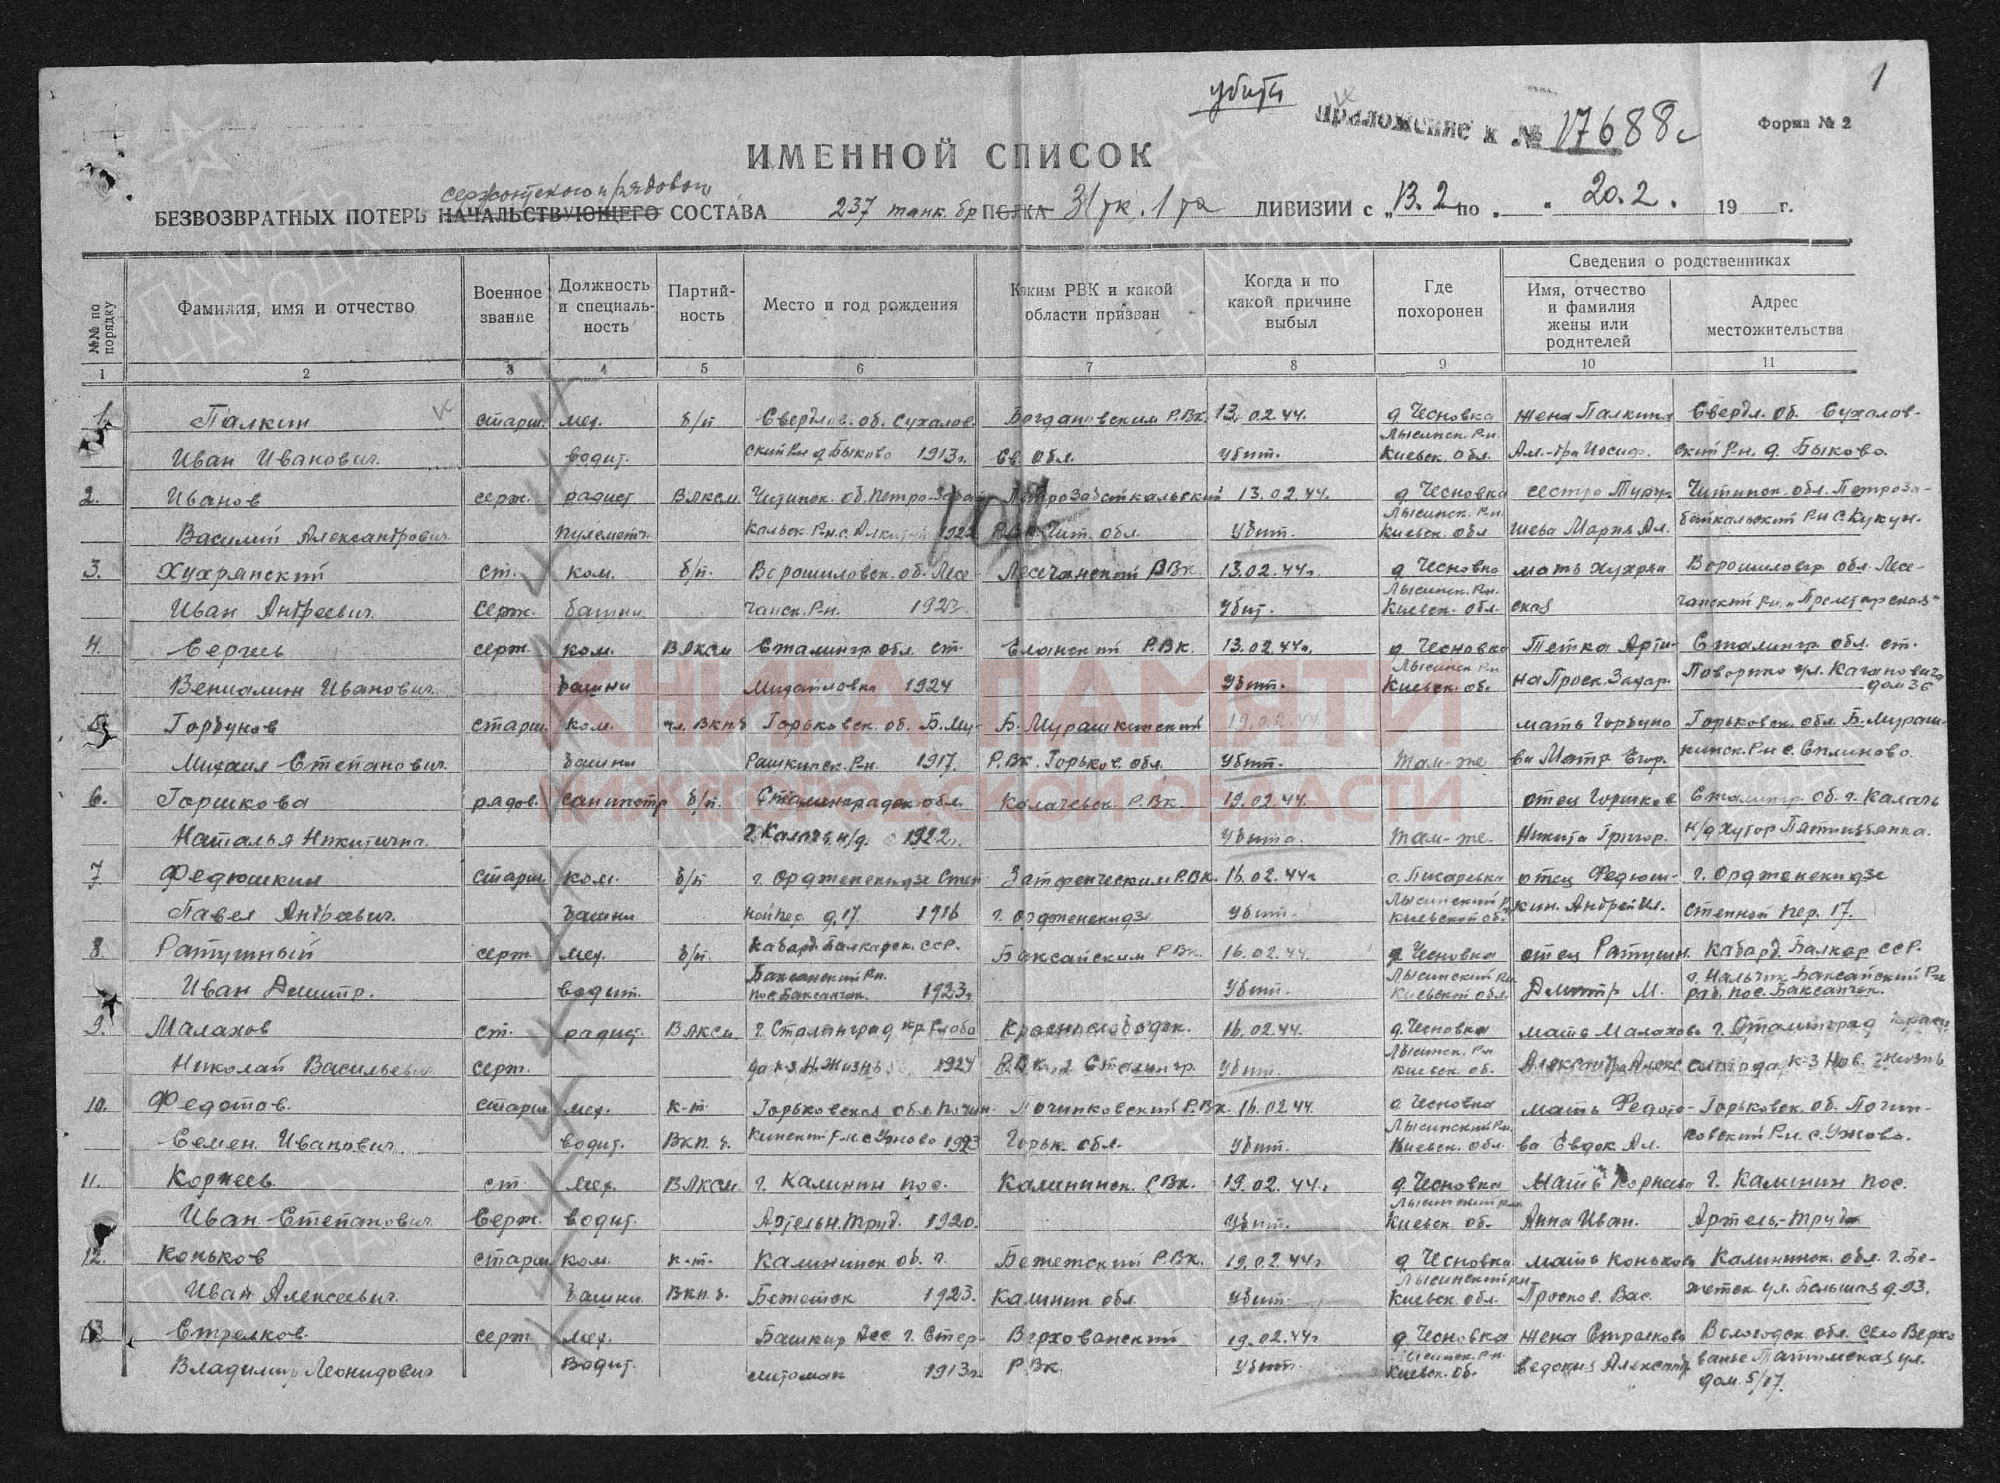 1
убиты
Приложение к № 17688с
Форма № 2
ИМЕННОЙ СПИСОК
сержантского и рядового
БЕЗВОЗВРАТНЫХ ПОТЕРЬ НАЧАЛЬСТВУЮЩЕГО СОСТАВА 237 танк. бр ПОЛКА 31 тк. 1 та ДИВИЗИИ с „13.2 по „ " 20.2. 19 г.
№№ по порядку
Фамилия, имя и отчество
Военное звание
Должность и специальность
Партийность
Место и год рождения
Каким РВК и какой области призван
Когда и по какой причине выбыл
Где похоронен
Сведения о родственниках
Имя, отчество и фамилия жены или родителей
Адрес местожительства
1 2 3 4 5 6 7 8 9 10 11
1. Палкин старш. мех. б/п Свердлов. об. Сухалов- Богдановским Р.Вк. 13.02.44. д Чесновка жена Палкина Свердл. об. Сухалов-
Лысинск. Р-н
Иван Иванович водит. ский Рн д Быково 1913г. Св. обл. Убит. Киевск. обл. Ал-дра Иосиф. ский Р.н. д. Быково.
2. Иванов серж. радист ВЛКСМ Читинск. об. Петро-Забай 13.02.44. д Чесновка сестра Читинск. обл. Петроза-
Лысинск. Р-н.
Василий Александрович пулеметч. 1922 Р.Вк Чит. обл. Убит. Киевск. обл шева Мария Ал. байкальский Р-н С. Кукун.
3. Хухрянский ст. ком. б/п. Ворошиловск. об. Лесе- Р.Вк. 13.02.44г. д Чесновка мать Хухрян Ворошиловгр обл. Лесе-
Лысинск. Р-н.
Иван Андреевич. серж. башни чанск. Р-н. 1923. Убит. Киевск. обл. ская чанский Р-н. „Пролетарская"
4. Сергеев серж. ком. ВЛКСМ Сталингр. обл. ст. Еланский Р.Вк. 13.02.44г. д Чесновка Тетка Арти- Сталингр. обл. ст.
Лысинск Р-н
Вениамин Иванович башни Михайловка 1924 Убит. Киевск. об. на Проск. Захар. Поворино ул. Кагановича
дом 36
5. Горбунов старш. ком. чл. ВКпб Горьковск. об. Б. Му- Б. Мурашкинский 19.02.44 мать Горбуно Горьковск. обл. Б. Мураш-
Михаил Степанович. башни рашкинск. Р-н. 1917. Р.Вк. Горьков. обл. Убит. там-же ва Матр. Егор. кинск. Р-н с.
6. Горшкова рядов. санинстр б/п. Сталинградск. обл. Калачевск. Р.Вк. 19.02.44. отец Горшков Сталингр. об. г. Калачь
Наталья Никитична. г. Калачь н/д. 1922г. Убита. там-же. Никита Григор. н/д хутор Пятиизбянка.
7. Федюшкин старш. ком. б/п г. Орджоникидзе Степ- Затеречным Р.Вк. 16.02.44г с. Писаревка отец Федюш- г. Орджоникидзе
Лысинский р
Павел Андреевич. башни ной пер. д. 17. 1916 г. Орджоникидзе Убит. Киевской об. кин. Андрей Ил. Степной пер. 17.
8. Ратушный серж. мех. б/п. Кабард. Балкарск. ССР. Баксайским Р.Вк. 16.02.44. д Чесновка отец Ратушн. Кабард. Балкар ССР.
Баксанский Р-н. Лысинский Р-н. г. Нальчик Баксайский Р-н
Иван Дмитр. водит. пос. Баксанчок. 1923г Убит. Киевской обл. Дмитр М. раб. пос. Баксанчок.
9. Малахов ст. радист. ВЛКСМ г. Сталинград кр. слобо Краснослободск. 16.02.44. д. Чесновка мать Малахова г. Сталинград красн
Лысинск. Р-н
Николай Васильевич серж. да к-з Н. Жизнь 1924 Р.Вк. г. Сталингр. Убит. Киевск. об. Александра Алекс слобода к-з Нов. Жизнь
10. Федотов. старш мех. к-т. Горьковская обл. Почин- Починковский Р.Вк. 16.02.44. д Чесновка мать Федото- Горьковск. об. Почин-
Лысинский Р-н.
Семен. Иванович. водит. ВКп. б. кинский Р-н. с. Ужово 1923 Горьк. обл. Убит. Киевск. обл. ва Евдок. Ал. ковский Р-н. с. Ужово.
11. Корнеев. ст. мех. ВЛКСМ. г. Калинин пос. Калининск. Р.Вк. 19.02.44.г д. Чесновка Мать Корнева г. Калинин пос.
Лысинский р-н
Иван. Степанович Серж. водит. Артельн. труд. 1920. Убит. Киевск. об. Анна Иван. Артель.-труда
12. Коньков старш ком. к-т. Калининск. об. г. Бежетский Р.Вк. 19.02.44г. д Чесновка мать Конькова Калининск. обл. г. Бе-
Лысинский р-н
Иван Алексеевич. башни. ВКп. б. Бежетск 1923. Калинин. обл. Убит. Киевск. обл. Просков. Вас. жетск ул. Большая д. 93.
13 Стрелков. серж мех. Башкир. Асс г. Стер- Верховажский 19.02.44г д Чесновка жена Стрелкова Вологодск. обл. село Верхо
Лысинск. Р-н.
Владимир Леонидович водит. литомак 1913г. Р.Вк. Убит. Киевск. об. Александр важье ул.
дом. 5/17.
ПАМЯТЬ НАРОДА
КНИГА ПАМЯТИ
НИЖЕГОРОДСКОЙ ОБЛАСТИ